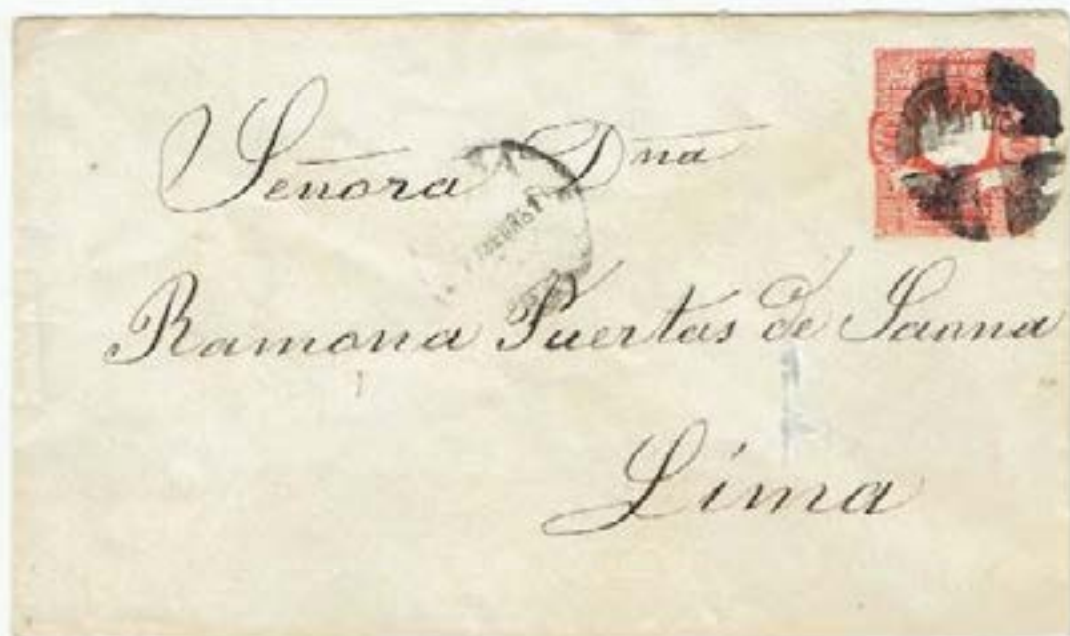 Señora Dna
Ramona Puertas de Sanna
Lima